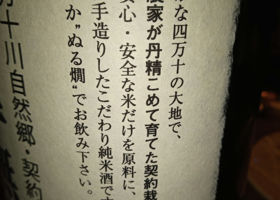 な四万十の大地で、
農家が丹精こめて育てた契約栽
安心・安全な米だけを原料に、
手造りしたこだわり純米酒です
か"ぬる燗"でお飲み下さい。
万十川自然郷・契約